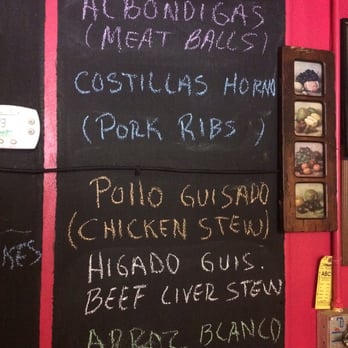 ALBONDIGAS
(MEAT BALLS)
COSTILLAS HORNO
(PORK RIBS )
POLLO GUISADO
(CHICKEN STEW)
HIGADO GUIS.
BEEF LIVER STEW
ARROZ BLANCO
KES
ABC